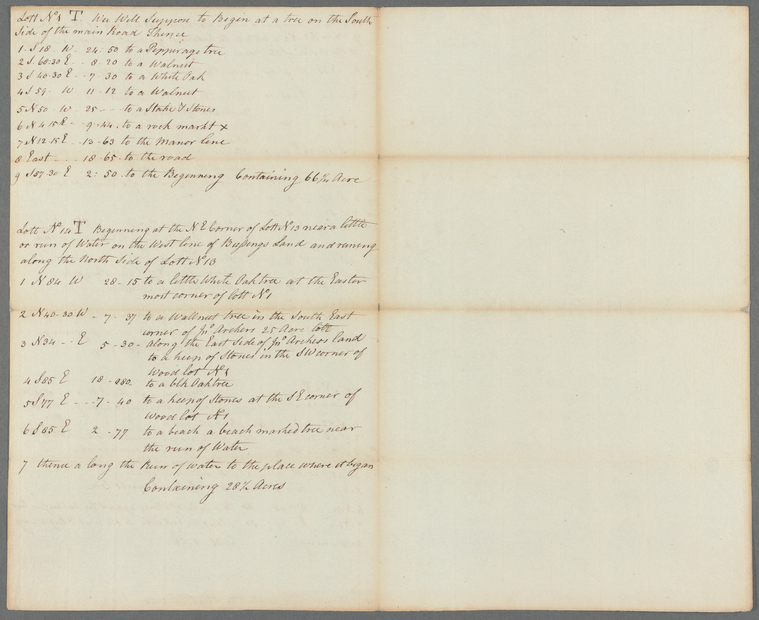 Lott No 1 T Wee Will Suppose to Begin at a tree on the South
Side of the main Road Thence
1 - S 18 - W 24 : 50 to a Pepperage tree
2 S. 68:30 E - - 8 - 20 to a Walnut
3 S 40-30 E - - 7 - 30 to a White Oak
4 S 59 - W 11 - 12 to a Walnut
5 N 50 - W 25 - - - to a Stake & Stones
6 N 4 15 E - - 9 - 44 - to a rock markt x
7 N 12 15 E - 13 - 63 to the Manor line
8 East - - - 18 - 65 - to the road
9 S 57-30 E 2 : 50 - to the Beginning Containing 66 Acre
Lott No 14 T Beginning at the N E Corner of Lott No 13 near a little
oo run of Water on the West line of Land and runing
along the North Side of Lott No 13
1 N 84 W 28 - 15 to a little White Oak tree at the Easter
most corner of lott No 1
2 N 40-30 W - 7 - 37 to a Wallnut tree in the South East
corner of Jno Archers 25 Acre lott
3 N 34 - - E 5 - 30 - along the East Side of Jno Archers land
to a heep of Stones in the S W corner of
Wood lot No 1
4 S 85 E 18 - 080 to a blk Oak tree
5 S 77 E - - - 7 - 40 to a heep of Stones at the S E corner of
Wood lot No 1
6 S 85 E 2 - 77 to a beach a beach marked tree near
the run of Water
7 thence a long the Run of water to the place where it began
Containing 28 1/4 Acres